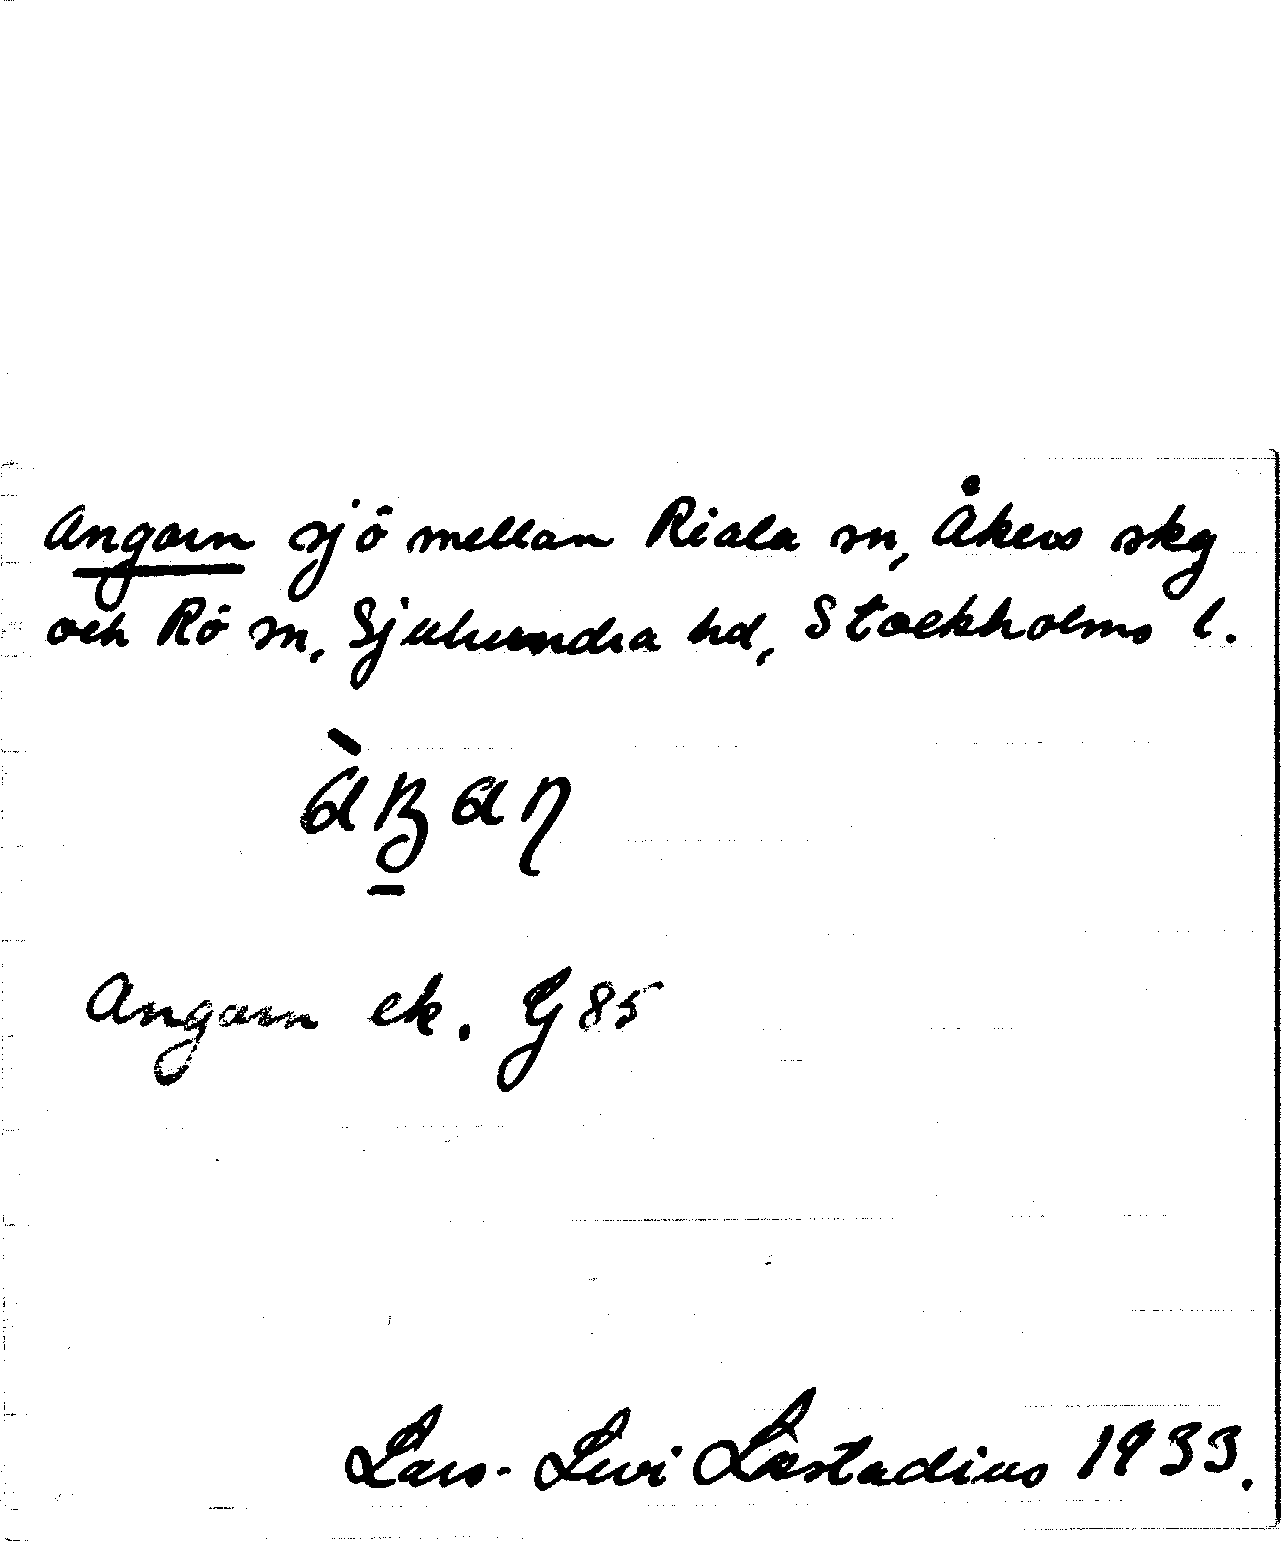 Angarn sjö mellan Riala sn, Åkers skg
och Rö sn, Sjuhundra hd, Stockholms l.
Angarn ek. G 85
Lars-Levi Læstadius 1933.